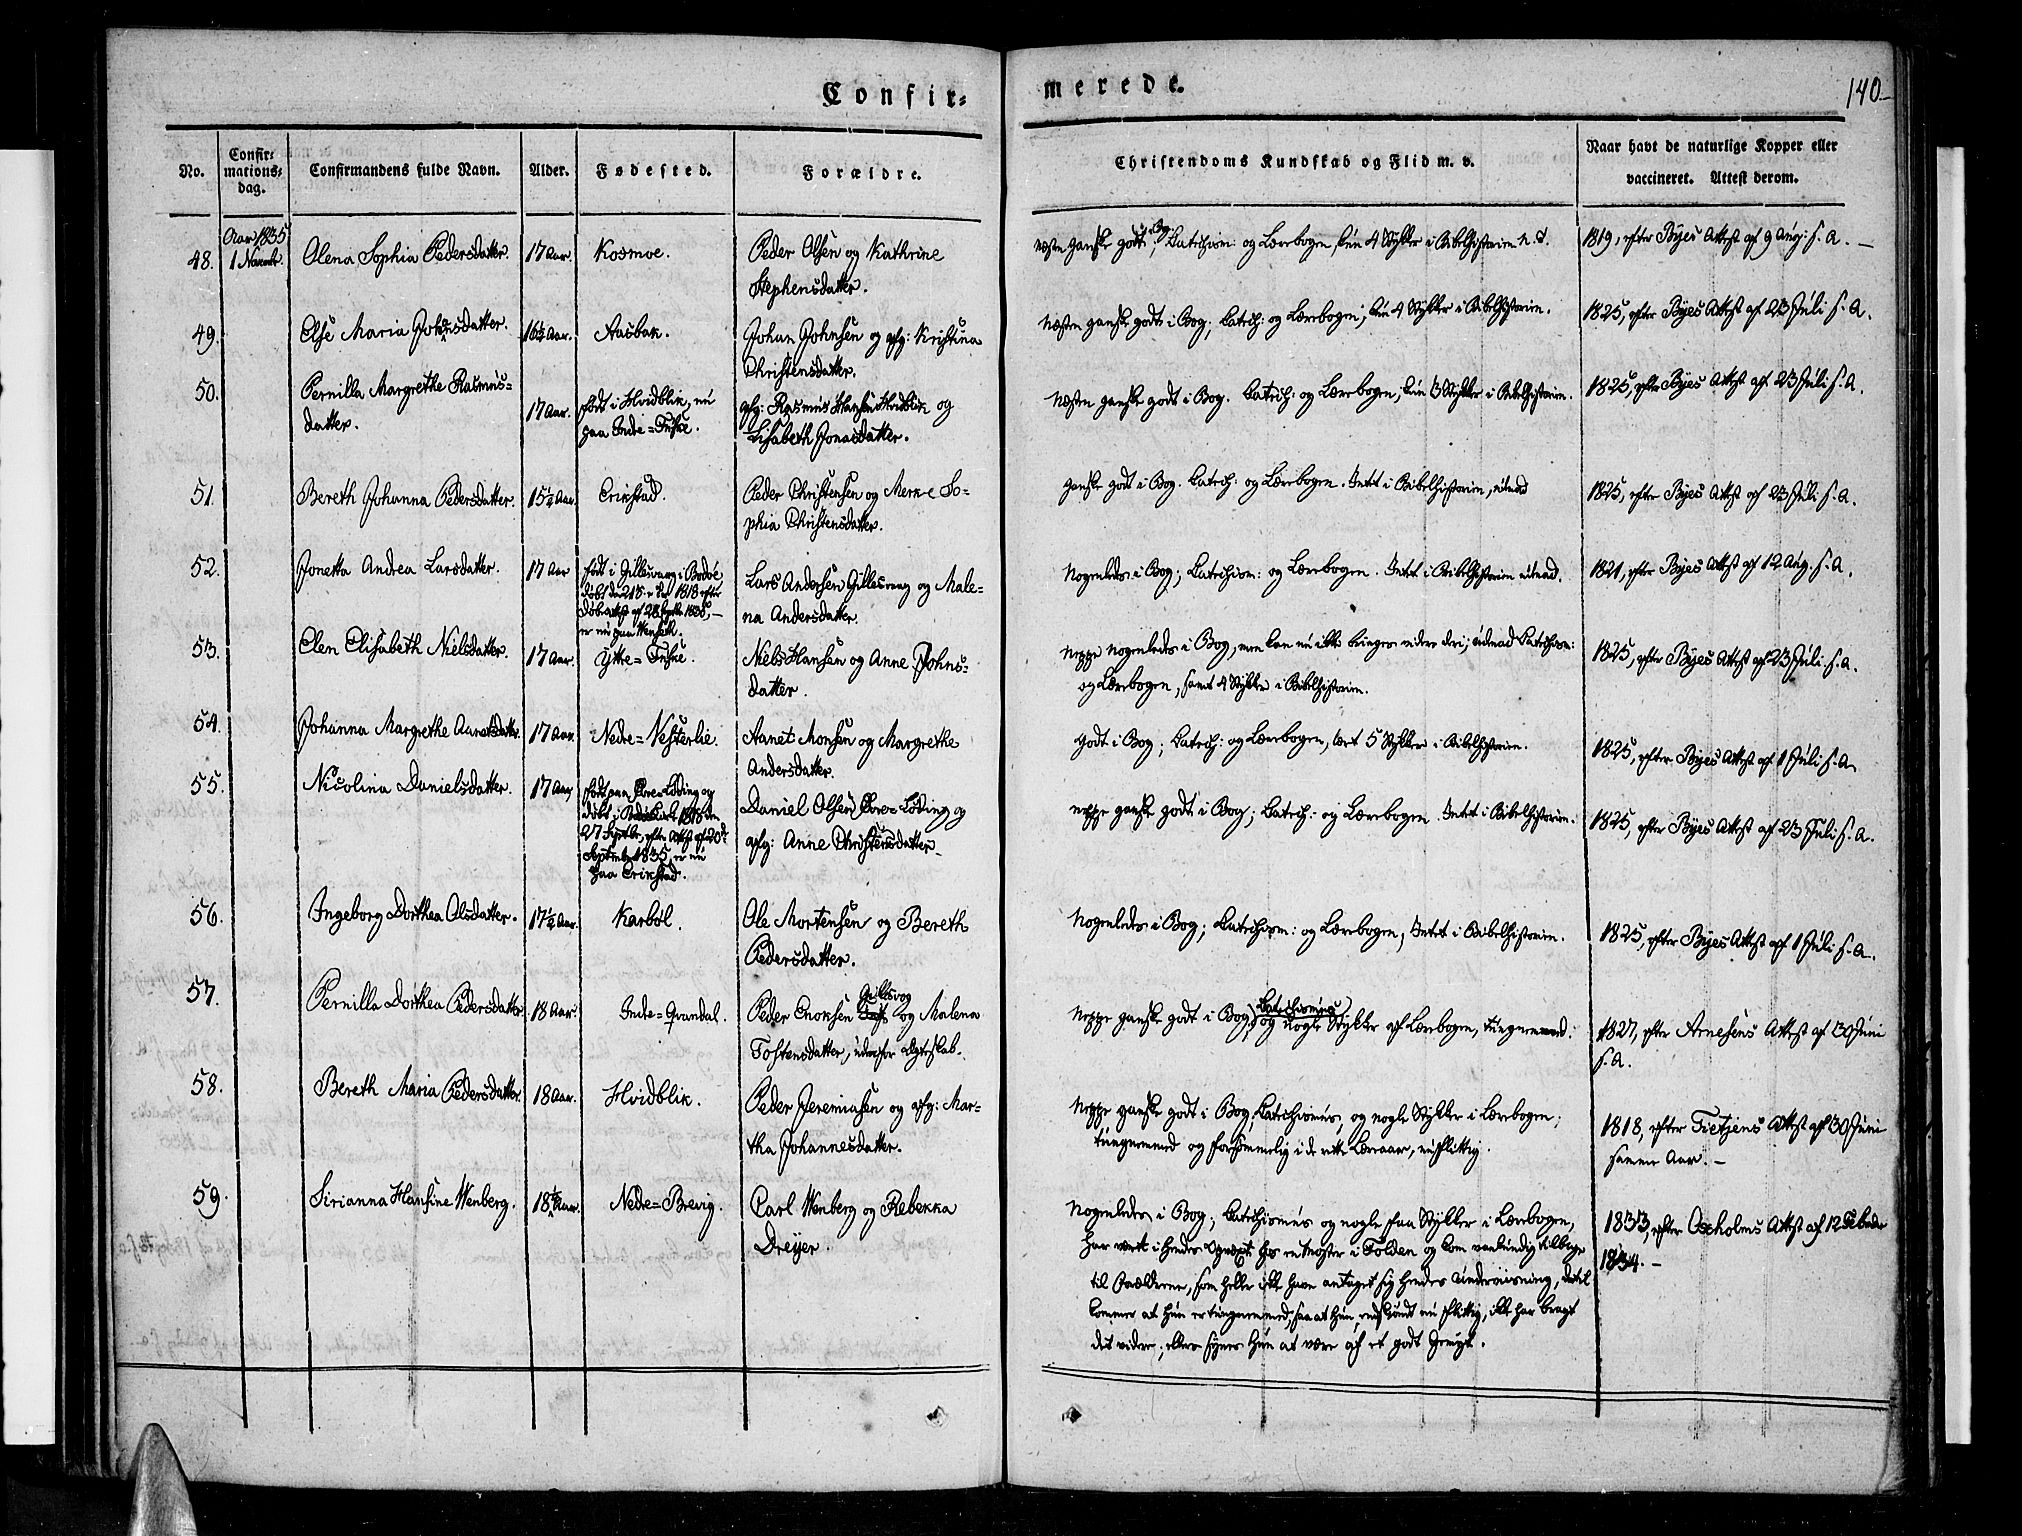 Confir=
merede.
140
No.
Confir=
mations=
dag.
Confirmandens fulde Navn.
Alder.
Fødested.
Forældre.
Christendoms Kundskab og Flid m. v.
Naar havt de naturlige Kopper eller
vaccineret. Attest derom.
Aar 1835
48. Olena Sophia Pedersdatter. 17 Aar. Kosmoe. Peder Olsen og Kathrine
Stephensdatter.
Næsten ganske godt i Bog, Catechism: og Lærebogen, kun 4 Stykker i Bibelhistorien
1819, efter Byes Attest af 9 Aug: s. A.
49. Else Maria Johnsdatter. 16½ Aar. Aasbak. Johan Johnsen og afg: Kristina
Christensdatter.
Næsten ganske godt i Bog; Catech: og Lærebogen; kun 4 Stykker i Bibelhistorien.
1825, efter Byes Attest af 23 Juli s. A.
50. Pernilla Margrethe Rasmus=
datter.
17 Aar. født i Hvidblik, nu
paa Indre=Fuske.
afg: Rasmus Hansen Hvidblik og
Lisabeth Jonasdatter.
Næsten ganske godt i Bog. Catech: og Lærebogen, kun 3 Stykker i Bibelhistorien.
1825, efter Byes Attest af 23 Juli s. A.
51. Bereth Johanna Pedersdatter. 15½ Aar. Erikstad. Peder Christensen og So=
phia Christensdatter.
ganske godt i Bog. Catech: og Lærebogen. Intet i Bibelhistorien, udenad
1825, efter Byes Attest af 23 Juli s. A.
52. Jonetta Andrea Larsdatter. 17 Aar født i Gillesvaag i Bodøe,
Lars Andersen Gillesvaag og Male=
na Andersdatter.
Nogenledes i Bog; Catechism: og Lærebogen. Intet i Bibelhistorien udenad.
1821, efter Byes Attest af 12 Aug. s. A.
53. Elen Elisabeth Nielsdatter. 17 Aar. Ytre=Fuske. Niels Hansen og Anne Johns=
datter.
Neppe nogenledes i Bog, men kan nu ikke bringes videre deri; udenad Catechism:
og Lærebogen, samt 4 Stykker i Bibelhistorien.
1825, efter Byes Attest af 23 Juli s. A.
54. Johanna Margrethe Aanetsdatter. 17 Aar. Nedre=Vesterlie. Aanet Monsen og Margrethe
Andersdatter.
Godt i Bog; Catech: og Lærebogen, 5 Stykker i Bibelhistorien.
1825, efter Byes Attest af 1 Juli s. A.
55. Nicolina Danielsdatter. 17 Aar født paa Øvre=Løding og
27 Septbr, efter Attest af 20de
September 1835, er nu
paa Erikstad.
Daniel Olsen Øvre=Løding og
afg: Anne Christensdatter
Neppe ganske godt i Bog; Catech: og Lærebogen. Intet i Bibelhistorien.
1825, efter Byes Attest af 23 Juli s. A.
56. Ingeborg Dorthea Olsdatter. 17½ Aar. Karbøl. Ole Mortensen og Bereth
Pedersdatter.
Nogenledes i Bog; Catechism: og Lærebogen, Intet i Bibelhistorien.
1825, efter Byes Attest af 1 Juli s. A.
57. Pernilla Dorthea Pedersdatter 18 Aar. Indre=Qvandal. Peder Enoksen og Malena
Tostensdatter, udenfor Ægteskab.
Neppe ganske godt i Bog, Catechismus og nogle Stykker af Lærebogen, tungnemmed:
1827, efter Arnesens Attest af 30 Juni
s. A.
58. Bereth Maria Pedersdatter. 18 Aar. Hvidblik. Peder Jeremiasen og afg: Mar=
tha Johannesdatter.
Neppe ganske godt i Bog, Catechismus, og nogle Stykker i Lærebogen;
tungnemmed og forsømmelig i de rette Læreaar, nu flittig.
1818, efter Tietjens Attest af 30 Juni
samme Aar.
59. Sirianna Hansine Wenberg. 18½ Aar. Nedre=Brevig. Carl Wenberg og Rebekka
Dreyer.
Nogenledes i Bog, Catechismus og nogle faa Stykker i Lærebogen,
har været i hendes Opvæxt hos en Moster i Folden og kom vankundig tilbage
til Forældrene, som heller ikke have antaget sig hendes Underviisning, dertil
kommer at Hun er tungnemmed, saa at Hun, endskiøndt nu flittig, ikke har bragt
det videre; ellers synes Hun at være af et godt Gemyt.
1833, efter Oxholms Attest af 12 Febr
1834.